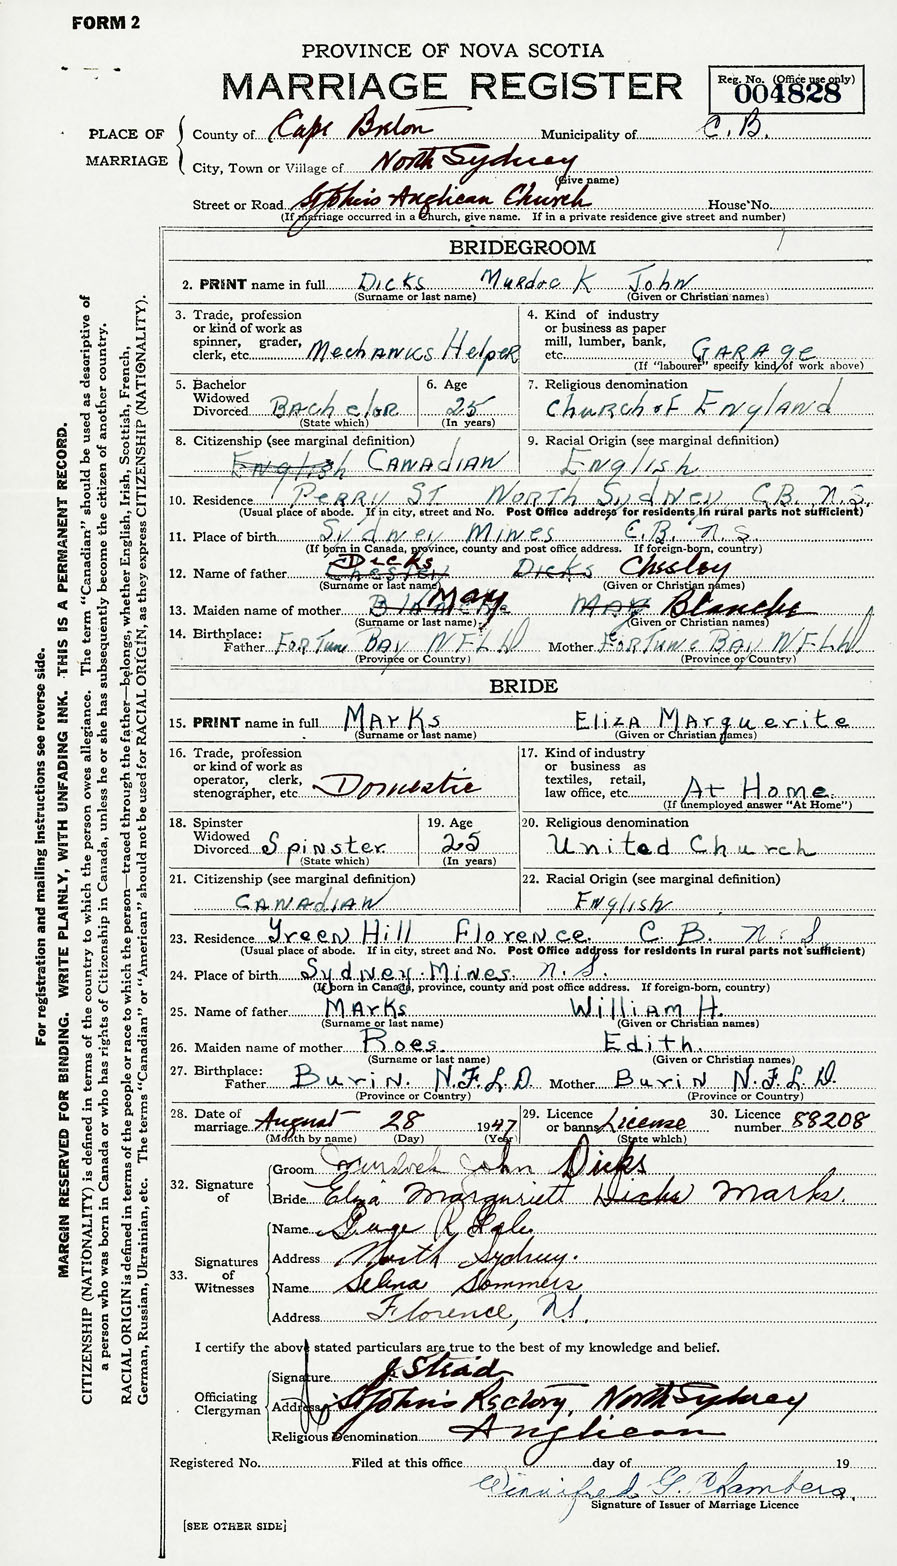 FORM 2
PROVINCE OF NOVA SCOTIA
MARRIAGE REGISTER
Reg. No. (Office use only)
004828
PLACE OF MARRIAGE
County of Cape Breton Municipality of C.B.
City, Town or Village of North Sydney
(Give name)
Street or Road St John's Anglican Church House No.
(If marriage occurred in a Church, give name. If in a private residence give street and number)
BRIDEGROOM
2. PRINT name in full Dicks Murdock John
(Surname or last name) (Given or Christian names)
3. Trade, profession or kind of work as spinner, grader, clerk, etc. Mechanics Helper
4. Kind of industry or business as paper mill, lumber, bank, etc. GARAGE
(If "labourer" specify kind of work above)
5. Bachelor Widowed Divorced Bachelor
(State which)
6. Age 25
(In years)
7. Religious denomination Church of England
8. Citizenship (see marginal definition) English CANADIAN
9. Racial Origin (see marginal definition) English
10. Residence Perry St North Sydney C.B. N.S.
(Usual place of abode. If in city, street and No. Post Office address for residents in rural parts not sufficient)
11. Place of birth Sydney Mines C.B. N.S.
(If born in Canada, province, county and post office address. If foreign-born, country)
12. Name of father Chester Dicks Dicks Chesley
(Surname or last name) (Given or Christian names)
13. Maiden name of mother Blanche Mary May Blanche
(Surname or last name) (Given or Christian names)
14. Birthplace:
Father Fortune Bay NFLD Mother Fortune Bay NFLD
(Province or Country) (Province or Country)
BRIDE
15. PRINT name in full Marks Eliza Marguerite
(Surname or last name) (Given or Christian names)
16. Trade, profession or kind of work as operator, clerk, stenographer, etc. Domestic
17. Kind of industry or business as textiles, retail, law office, etc. At Home.
(If unemployed answer "At Home")
18. Spinster Widowed Divorced Spinster
(State which)
19. Age 25
(In years)
20. Religious denomination United Church
21. Citizenship (see marginal definition) CANADIAN
22. Racial Origin (see marginal definition) English
23. Residence Green Hill Florence. C.B. N.S
(Usual place of abode. If in city, street and No. Post Office address for residents in rural parts not sufficient)
24. Place of birth Sydney Mines. N.S.
(If born in Canada, province, county and post office address. If foreign-born, country)
25. Name of father Marks William H.
(Surname or last name) (Given or Christian names)
26. Maiden name of mother Roes. Edith.
(Surname or last name) (Given or Christian names)
27. Birthplace:
Father Burin. N.F.L.D. Mother Burin N.F.L.D.
(Province or Country) (Province or Country)
28. Date of marriage August 28 1947
(Month by name) (Day) (Year)
29. Licence or banns License
(State which)
30. Licence number 88208
32. Signature of
Groom Murdock John Dicks
Bride Eliza Margueriett Dicks Marks.
33. Signatures of Witnesses
Name
Address North Sydney.
Name Selina Sommers
Address Florence, NS.
I certify the above stated particulars are true to the best of my knowledge and belief.
Officiating Clergyman
Signature J. Stead
Address St John's Rectory, North Sydney
Religious Denomination Anglican
Registered No. Filed at this office day of 19
Winnifred G. Chambers.
Signature of Issuer of Marriage Licence
[SEE OTHER SIDE]
For registration and mailing instructions see reverse side.
MARGIN RESERVED FOR BINDING. WRITE PLAINLY, WITH UNFADING INK. THIS IS A PERMANENT RECORD.
CITIZENSHIP (NATIONALITY) is defined in terms of the country to which the person owes allegiance. The term "Canadian" should be used as descriptive of
a person who was born in Canada or who has rights of Citizenship in Canada, unless he or she has subsequently become the citizen of another country.
RACIAL ORIGIN is defined in terms of the people or race to which the person—traced through the father—belongs, whether English, Irish, Scottish, French,
German, Russian, Ukrainian, etc. The terms "Canadian" or "American" should not be used for RACIAL ORIGIN, as they express CITIZENSHIP (NATIONALITY).